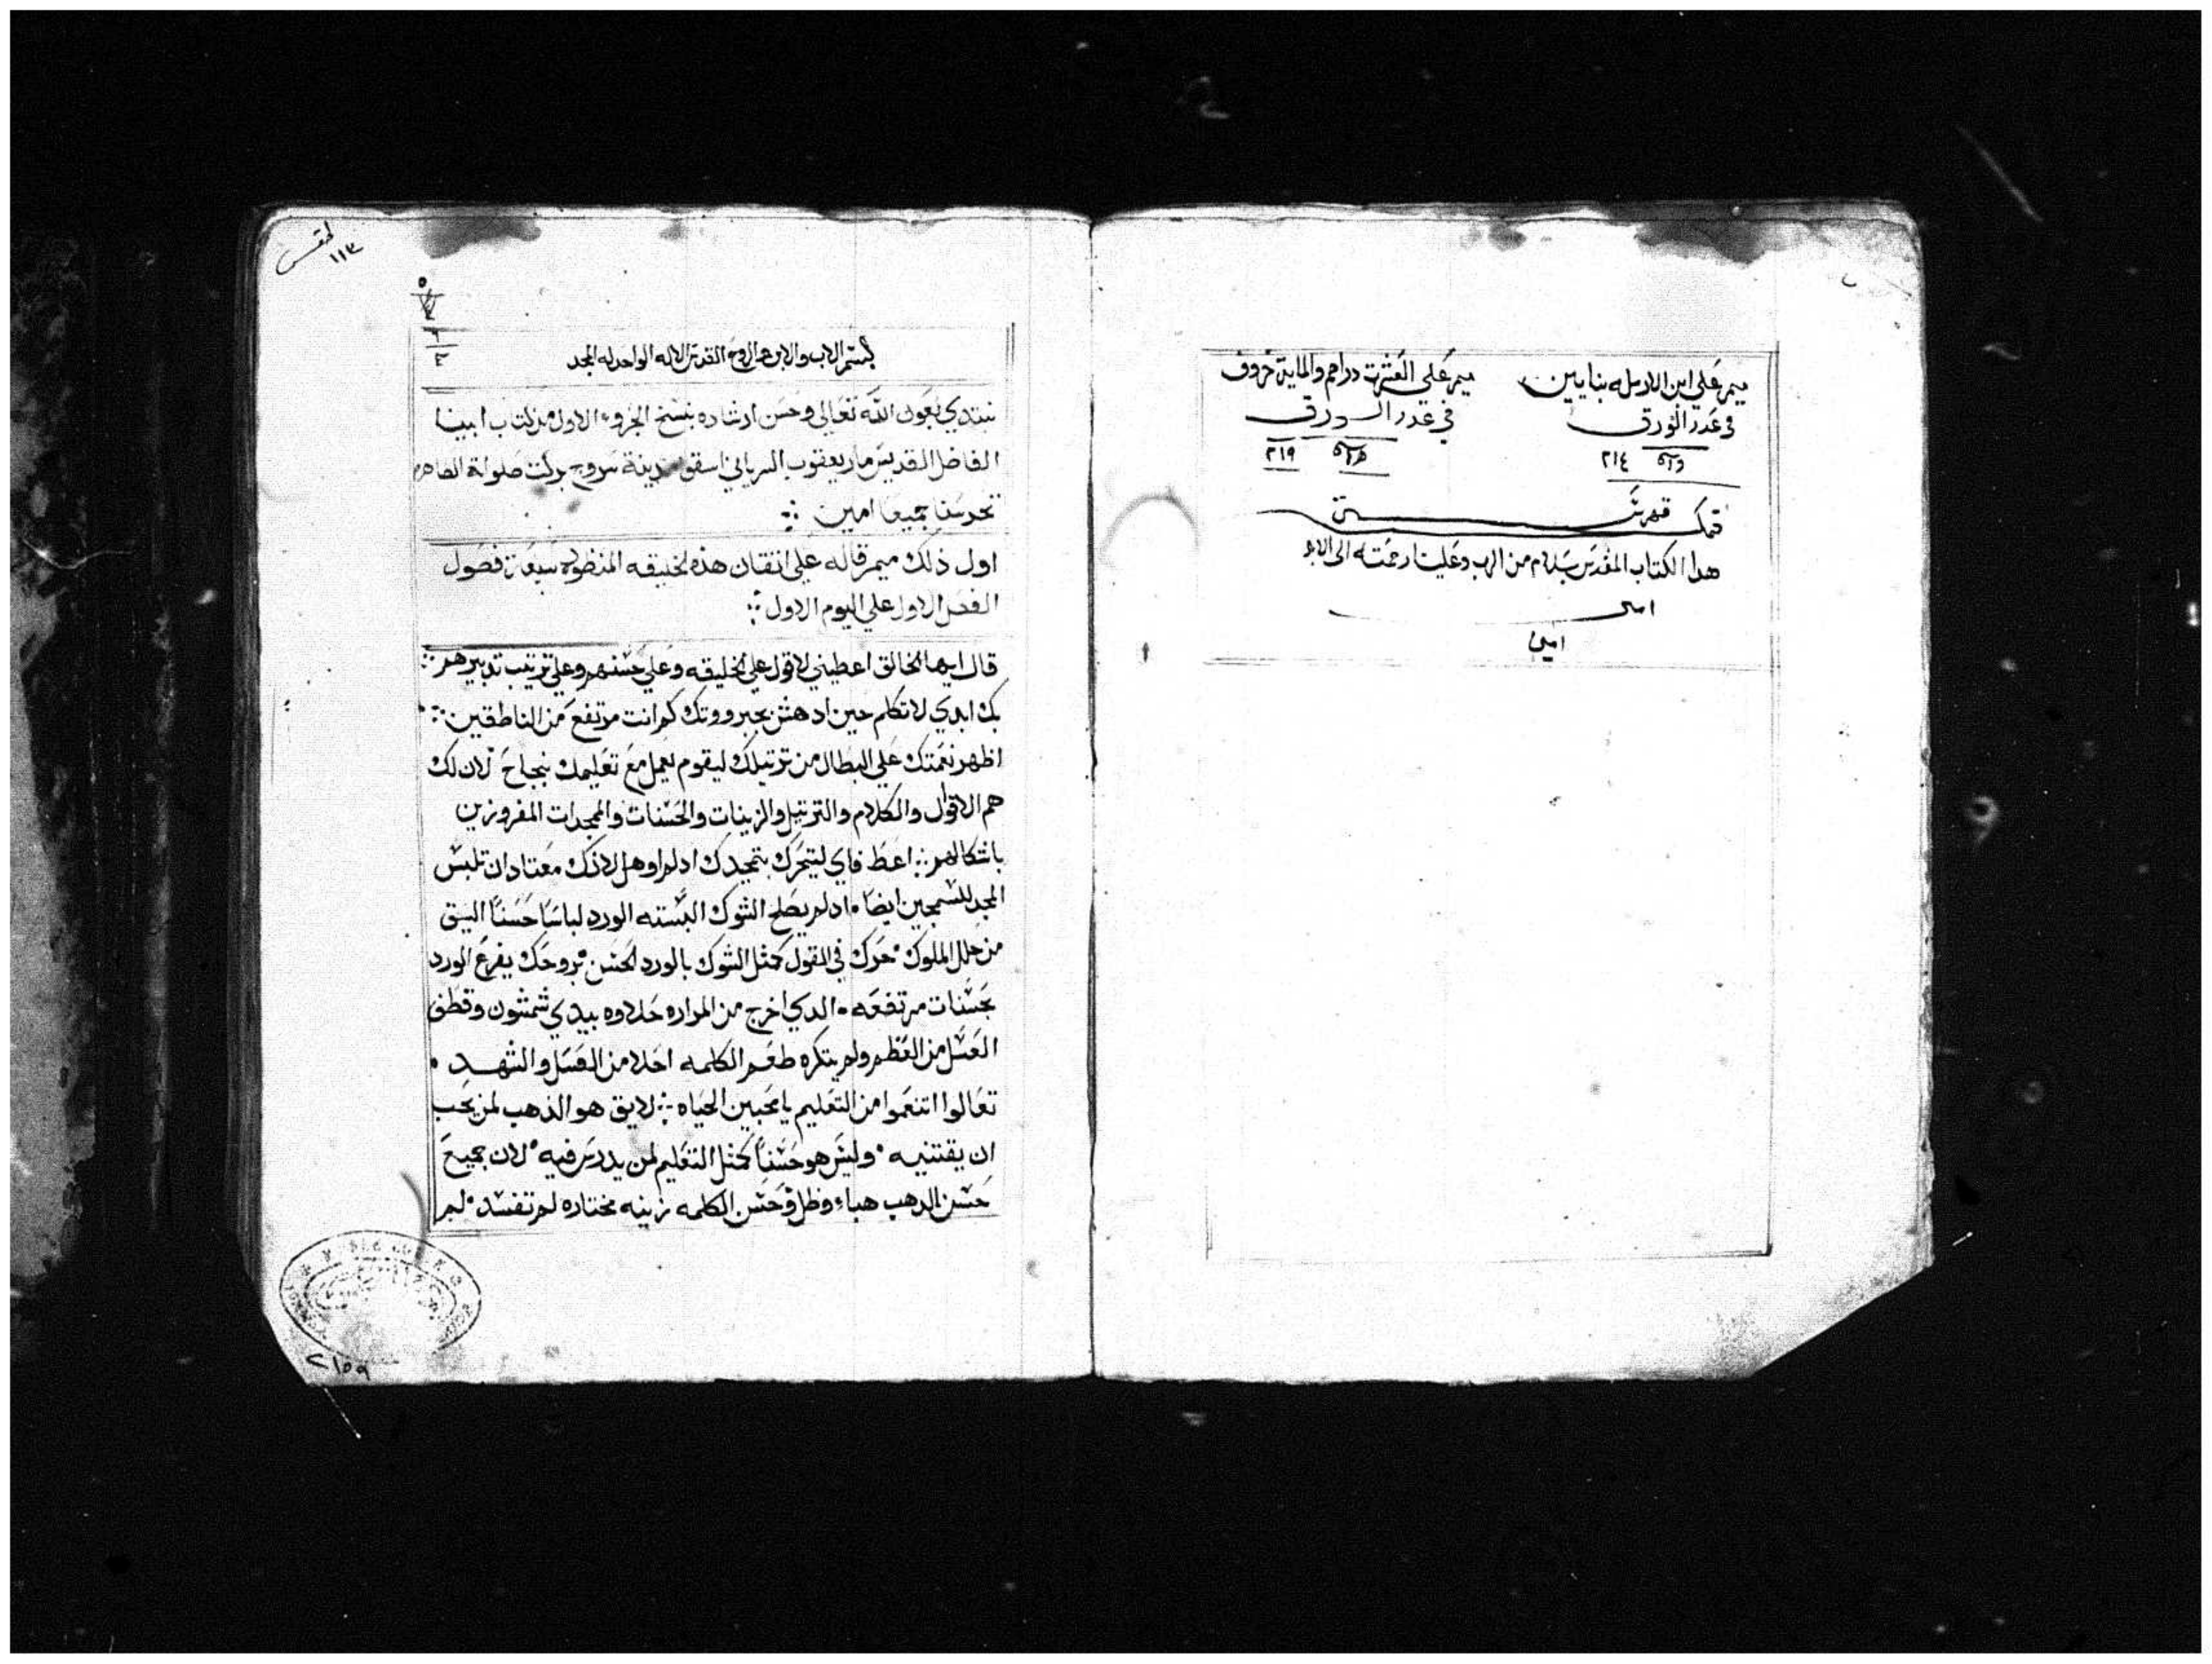 ميمر علي ابن الارمله بنايين
في عدد الورق
٢١٤
ميمر علي العشرت دراهم والماية خروف
في عدد الورق
٢١٩
تمت فهرست
هدا الكتاب المقدس بسلام من الرب وعلينا رحمته الى الابد
امين
امين
لمقدس
١١٣
بسم الاب والابن والروح القدس الاله الواحد له المجد
نبتدي بعون الله تعالى وحسن ارشاده بنسخ الجزوء الاول من كتاب ابينا
الفاضل القديس مار يعقوب السرياني اسقف مدينة سروج بركت صلواته الطاهره
تحرسنا جميعا امين
اول ذلك ميمر قاله علي اتقان هذه الخليقه المنظوره سبعة فصول
الفصل الاول علي اليوم الاول
قال ايها الخالق اعطيني لاقول علي الخليقه وعلي حسنهم وعلي ترتيب تدبيرهم
بك ابدي لاتكلم حين ادهش بجبرووتك كم انت مرتفع من الناطقين
اظهر نعمتك علي البطال من ترتيلك ليقوم بعمل مع تعليمك بنجاح لان لك
هم الاقوال والكلام والترتيل والزينات والحسنات والممجدات المفروزين
باشكالهم اعط فاي ليتحرك بتمجيدك ادلم اوهل لانك معتاد ان تلبس
المجد للسمجين ايضا ادلم يصلح الشوك البسته الورد لباسا حسنا اليق
من حلل الملوك حرك في القول كمثل الشوك بالورد الحسن بروحك يفرع الورد
بحسنات مرتفعه الدي اخرج من المراره حلاوه بيدي شمشون وقطف
العسل من العظم ولم يتكره طعم الكلمه احلا من العسل والشهد
تعالوا اتنعموا من التعليم يا محبين الحياه لايق هو الذهب لمن يحب
ان يقتنيه وليس هو حسنا كمثل التعليم لمن يدرس فيه لان جميع
حسن الدهب هباء وظل وحسن الكلمه زينه مختاره لم تفسد لم
٢١٥٩